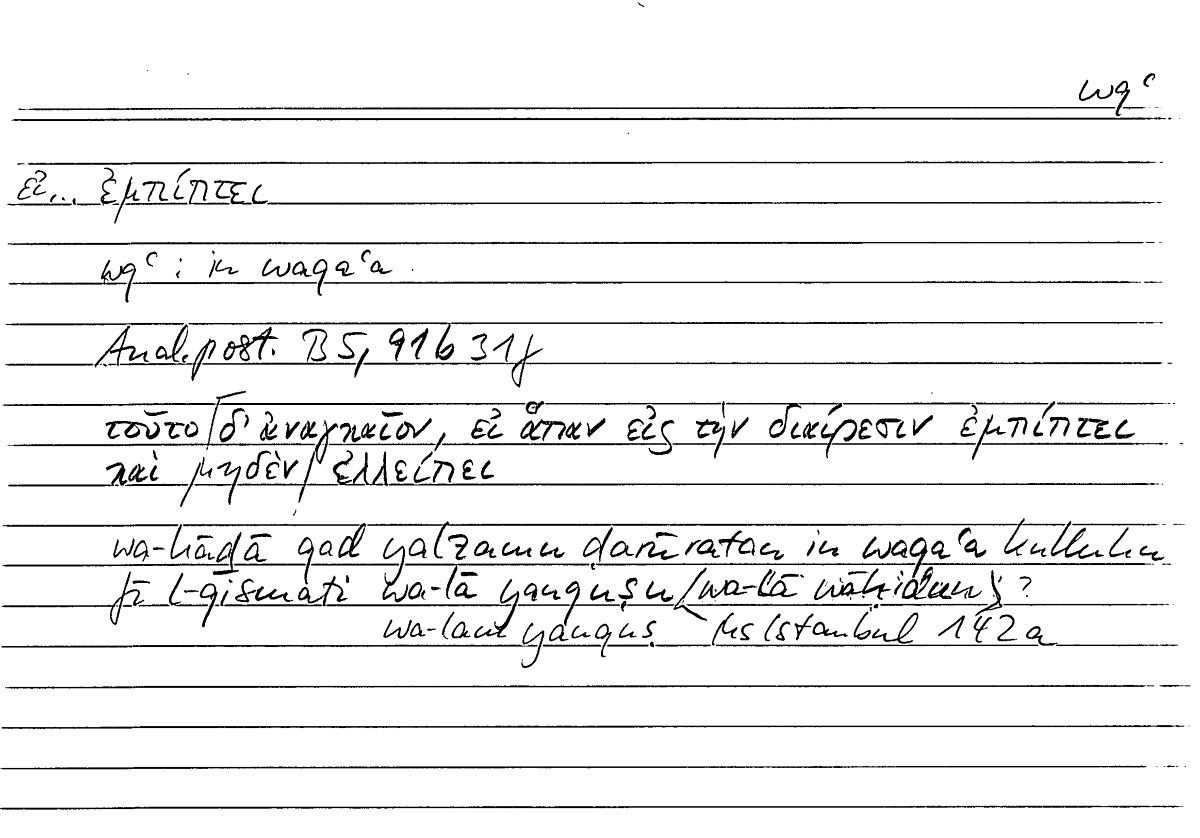 wqʿ
εἰ... ἐμπίπτει
wqʿ : in waqaʿa
Anal. post. B 5, 91b 31f
τοῦτο / δ' ἀναγκαῖον, εἰ ἅπαν εἰς τὴν διαίρεσιν ἐμπίπτει
καὶ μηδὲν / ἐλλείπει
wa-hāḏā qad yalzamu ḍarūratan in waqaʿa kulluhu
fī l-qismati wa-lā yanquṣu (wa-lā wāḥidun) ?
wa-lam yanquṣ Ms Istanbul 142a